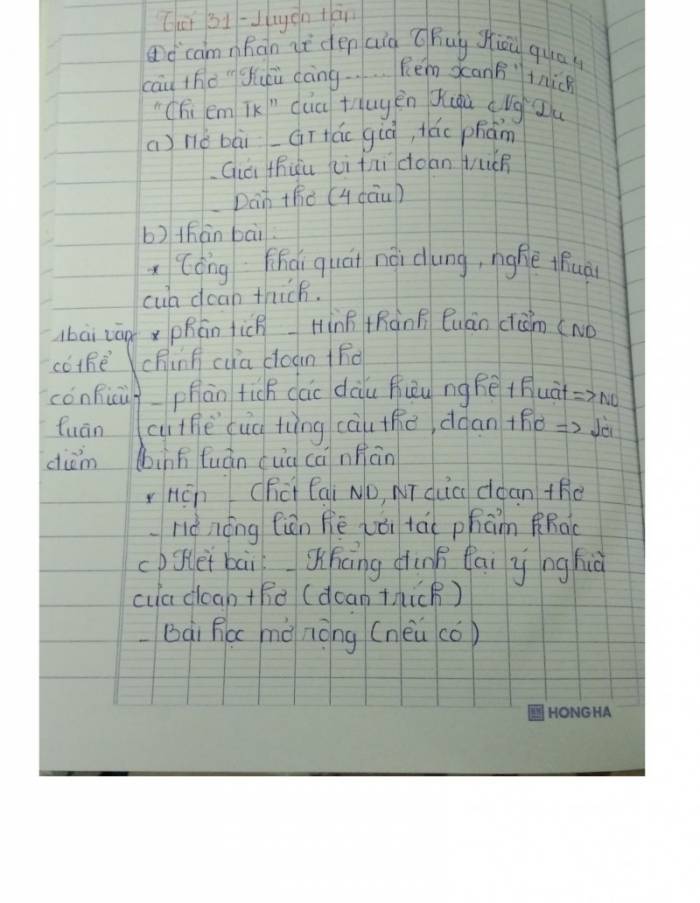 Tiết 31 - Luyện tập
Đề cảm nhận vẻ đẹp của Thuý Kiều qua 4
câu thơ "Kiều càng..... kém xanh" trích
"Chị em TK" của truyện Kiều (Ng Du
a) Mở bài: - GT tác giả, tác phẩm
- Giới thiệu vị trí đoạn trích
- Dẫn thơ (4 câu)
b) thân bài:
* Tổng - Khái quát nội dung, nghệ thuật
của đoạn trích.
1 bài văn * phân tích - Hình thành luận điểm (ND
có thể chính của đoạn thơ
có nhiều - phân tích các dấu hiệu nghệ thuật => ND
luận cụ thể của từng câu thơ, đoạn thơ => lời
điểm bình luận của cá nhân
* Hợp - Chốt lại ND, NT của đoạn thơ
- Mở rộng liên hệ với tác phẩm khác
c) Kết bài: - Khẳng định lại ý nghĩa
của đoạn thơ (đoạn trích)
- Bài học mở rộng (nếu có)
HONG HA